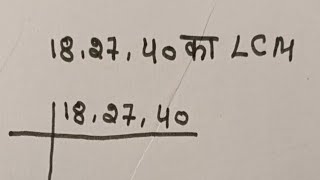 18,27,40 का LCM
18,27,40